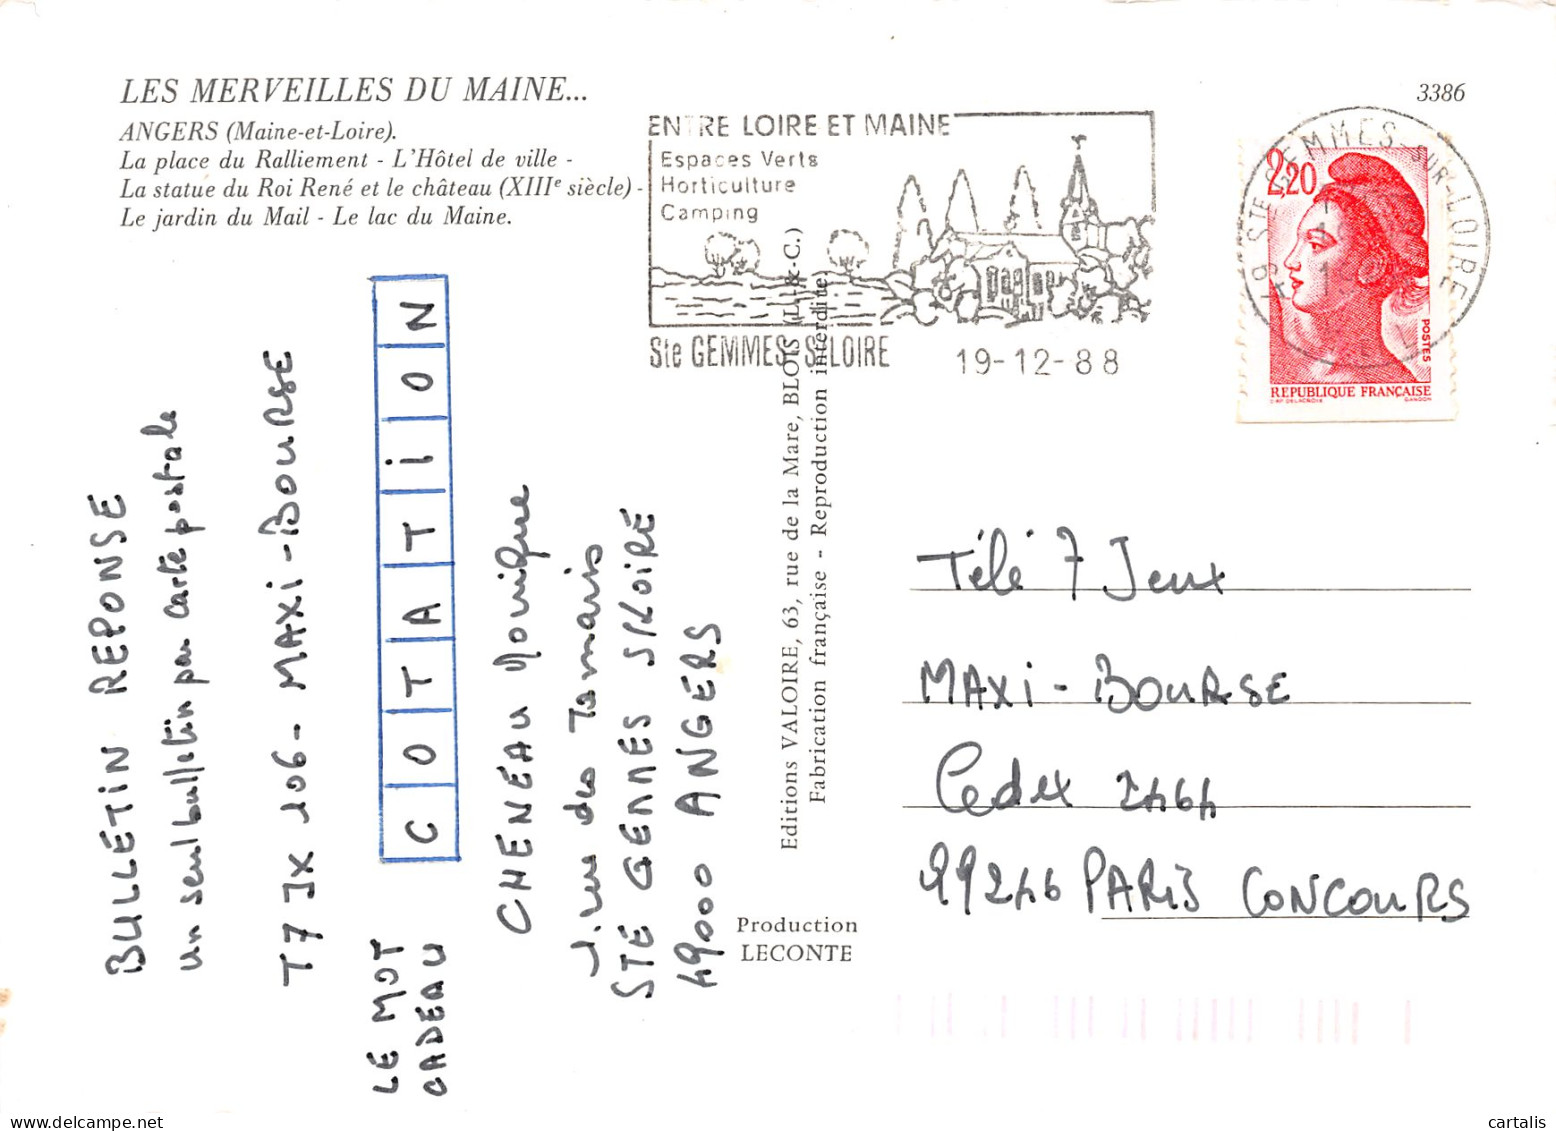 LES MERVEILLES DU MAINE...
ANGERS (Maine-et-Loire).
La place du Ralliement - L'Hôtel de ville -
La statue du Roi René et le château (XIIIe siècle) -
Le jardin du Mail - Le lac du Maine.
3386
ENTRE LOIRE ET MAINE
Espaces Verts
Horticulture
Camping
Ste GEMMES S LOIRE
19-12-88
49 STE GEMMES-SUR-LOIRE
2,20
POSTES
REPUBLIQUE FRANÇAISE
GANDON
BULLETIN REPONSE
un seul bulletin par carte postale
T7 JX 106 - MAXI-BOURSE
LE MOT
CADEAU
COTATiON
CHENEAU Monique
rue des Tamaris
STE GEMMES S/LOIRE
49000 ANGERS
Editions VALOIRE, 63, rue de la Mare, BLOIS (L.-&-C.)
Fabrication française - Reproduction interdite.
Production
LECONTE
Télé 7 Jeux
MAXI-BOURSE
Cedex 2464
99246 PARIS CONCOURS
cartalis